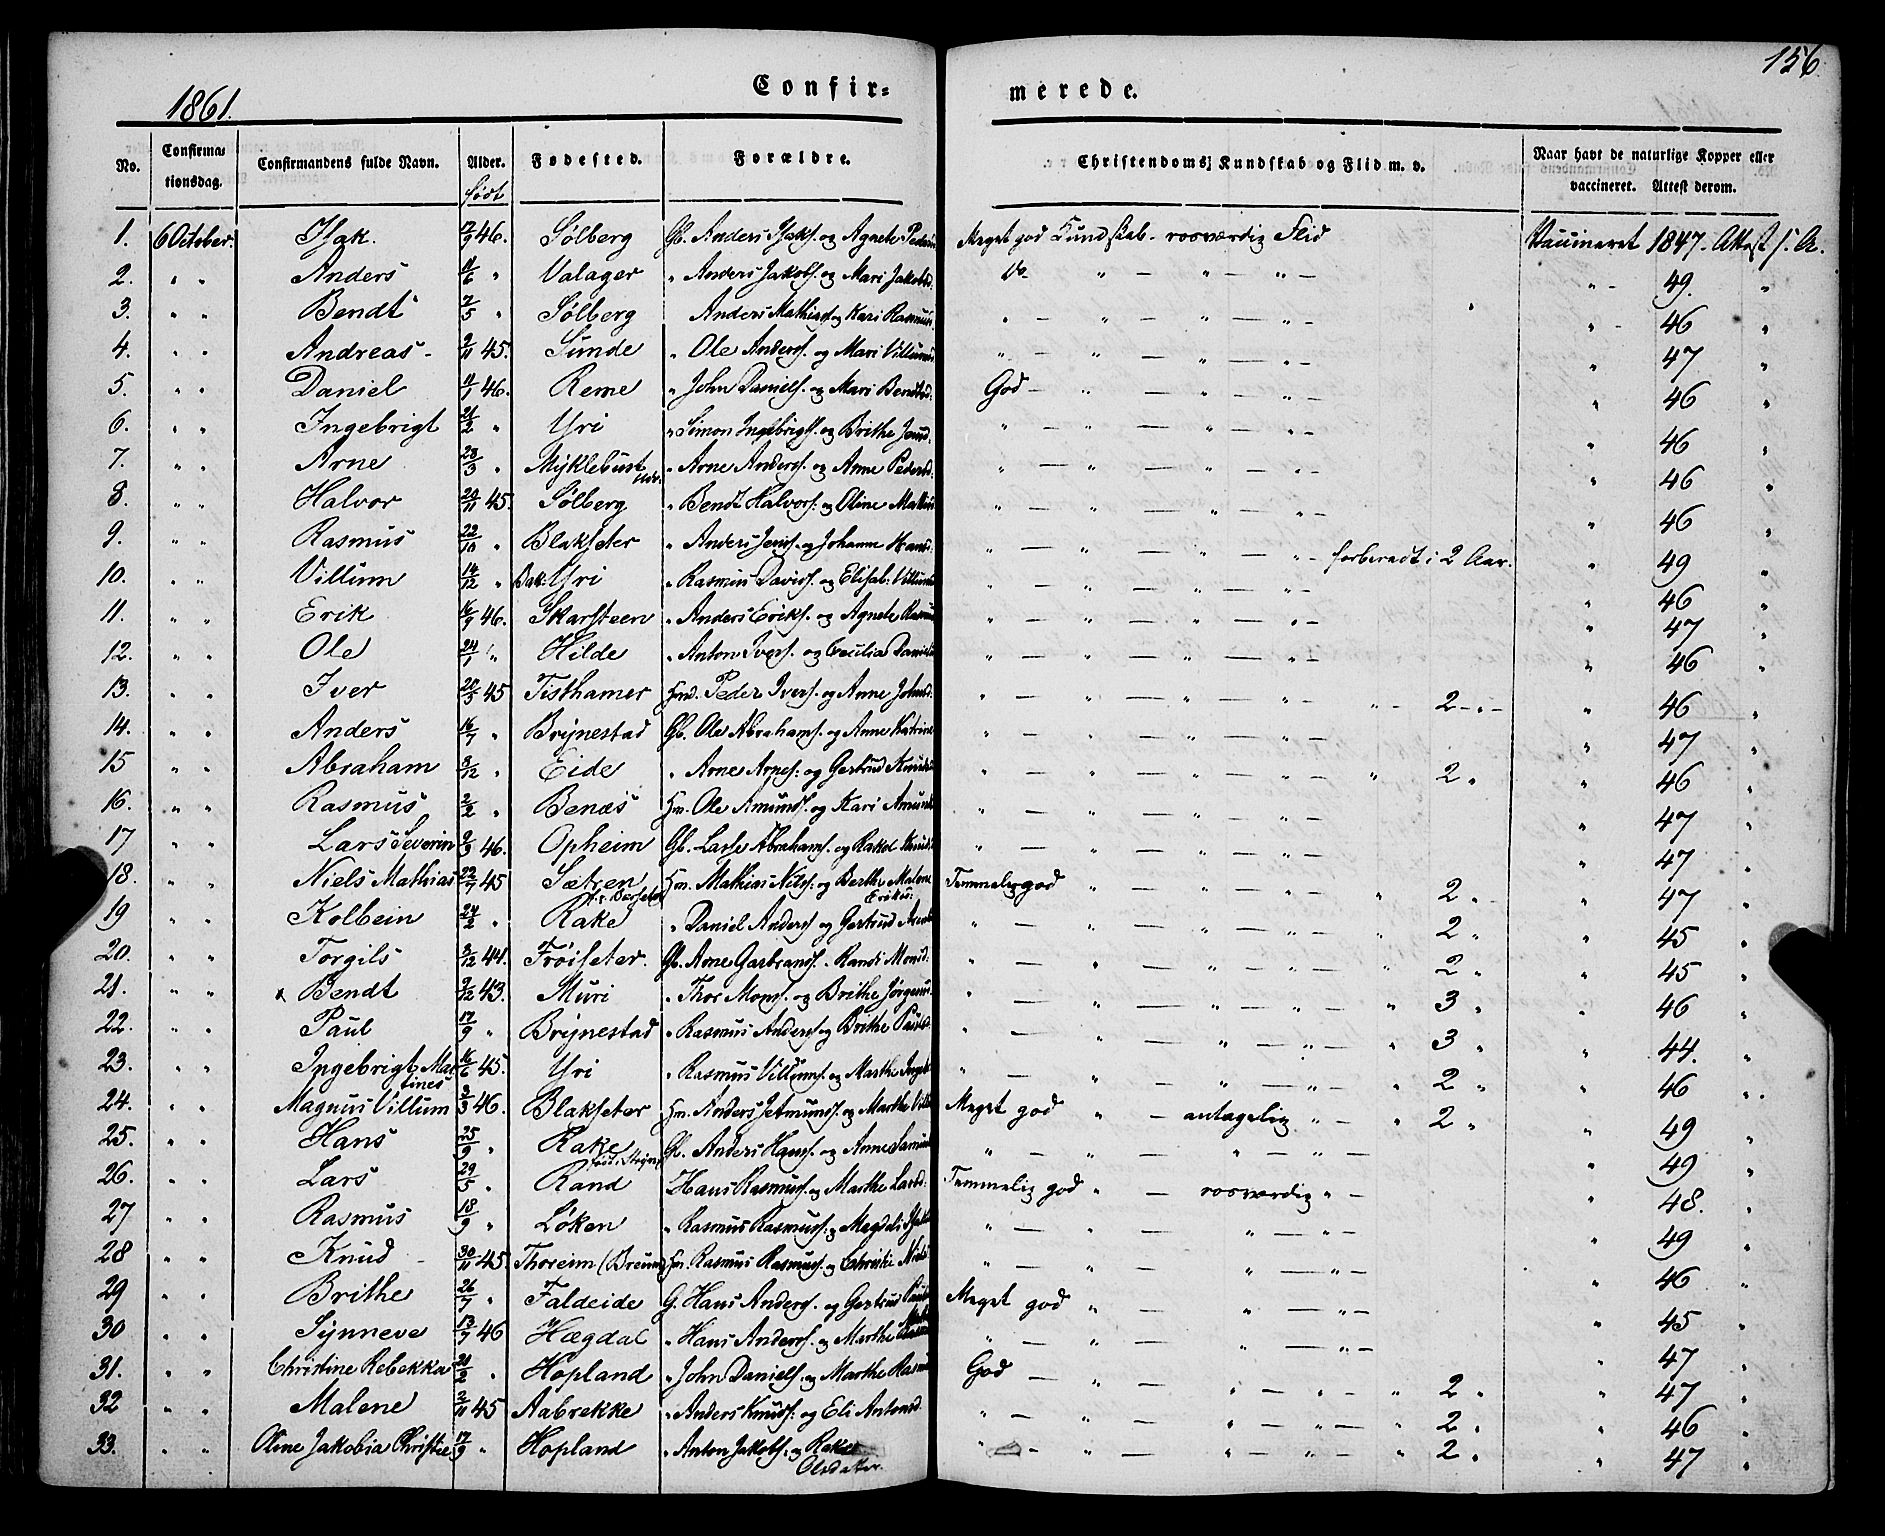 156
1861.
Confir= merede.
No. Confirmationsdag. Confirmandens fulde Navn. Alder. født Fødested. Forældre. Christendoms Kundskab og Flid m. v. Naar havt de naturlige Kopper eller vaccineret. Attest derom.
1. 6 October. Isak. 17/9 46. Sølberg Gb. Anders Isaks. og Agnete Meget god Kundskab - rosværdig Flid Vaccineret 1847. Attest s. A.
2. " " Anders 11/6 " Valager " Anders Jakobs. og Mari Jakobsd. Do " - " - " - " - 49. "
3. " " Bendt 7/5 " Sølberg Anders Mathias og Kari Rasmus " - " - " - " - 46 "
4. " " Andreas - 2/11 45. Sunde " Ole Anders. og Mari Villums " - " - " - " - 47 "
5. " " Daniel 11/1 46. Reme " John Daniels. og Mari Bendtsd. God - " - " - " - 46 "
6. " " Ingebrigt 21/2 " Yri " Simon Ingebrigts. og Brithe " - " - " - " - 46 "
7. " " Arne 28/3 " Myklebust " Arne Anders. og Anne Pedersd. " - " - " - " - 46 "
8. " " Halvor 20/11 45. Sølberg " Bendt Halvors. og Oline " - " - " - " - 46 "
9. " " Rasmus 22/10 " Blakseter " Anders Jens. og Johanne Hans " - " - " - " - forberedt i 2 Aar. 49 "
10. " " Villum 14/12 " Bak. Yri " Rasmus Davids. og Elisab. Villum " - " - " - " - 46 "
11. " " Erik 16/9 46. Skarsteen " Anders Eriks. og Agnete Rasmus " - " - " - " - 47 "
12. " " Ole 24/1 " Hilde " Anton Ivers. og Cecilia Daniels " - " - " - " - 46 "
13. " " Iver 20/5 45 Tisthamer Hmd. Peder Ivers. og Anne Johnsd. " - " - " - " - " - 2 - " - 46 "
14. " " Anders 16/7 " Brynestad Gb. Ole Abrahams. og Anne Katrine " - " - " - " - 47 "
15 " " Abraham 8/12 " Eide " Arne Arnes. og Gertrud Knuds " - " - " - " - " 2 " 46 "
16. " " Rasmus 2/2 " Benæs Hm. Ole Amunds. og Kari Amunds " - " - " - " - 47 "
17 " " Lars Severin 9/3 46. Opheim Gb. Lasse Abrahams. og Rakel Knuds " - " - " - " - 47 "
18. " " Niels Mathias 22/7 45 Sætren Hm. Mathias Nils. og Berthe Malene Eriks. Temmelig god " - " - " - " 2 " 47 "
19 " " Kolbein 24/2 " Rake " Daniel Anders. og Gertrud " - " - " - " - " 2 " 45 "
20. " " Torgils 8/12 44. Frøiseter. Gb. Arne Garbrands. - Randi Monsd. " - " - " - " - " 2 " 45 "
21. " " x Bendt 9/12 43. Muri " Thor Mons. og Brithe Jørgens. " - " - " - " - " 3 " 46 "
22. " " Paul 17/9 " Brynestad " Rasmus Anders. og Brithe Pauls. " - " - " - " - " 3 " 44. "
23. " " Ingebrigt Martines 16/6 45. Yri " Rasmus Villums. og Marthe Ingeb. " - " - " - " - " 2 " 46 "
24. " " Magnus Villum 2/3 46. Blakseter Hm. Anders Jetmunds. og Marthe Meget god " - antagelig " - " 2 " 49 "
25. " " Hans 25/9 " Rake Gb. Anders Hans. og Anne " - " - " - " - 49 "
26. " " Lars 29/5 " Rand Hans Rasmus. og Marthe Larsd. Temmelig god " - rosværdig " - 48. "
27 " " Rasmus 18/9 " Løken " Rasmus Rasmus. og Magdeli " - " - " - " - 49 "
28 " " Knud - 30/11 45. Thoreim (Breum) Hm. Rasmus Rasmus. og Christie Niels " - " - " - " - 46 "
29 " " Brithe 26/7 " Faldeide G. Hans Anders. og Gertrud Meget god " - " - " - 45 "
30 " " Synneve 13/7 46 Hægdal " Hans Anders. og Marthe " - " - " - " - 47 "
31. " " Christine Rebekka 21/2 " Hopland " John Daniels. og Marthe Rasmus God - " - " - " - " 2 " 47 "
32 " " Malene 2/11 45 Aabrekke " Anders Knuds. og Eli Antonsd. " - " - " - " - " 2 " 46 "
33. " " Oline Jakobia Christie 17/9 " Hopland " Anton Jakobs. og Rakel Olsdatter. " - " - " - " - " 2 " 47 "